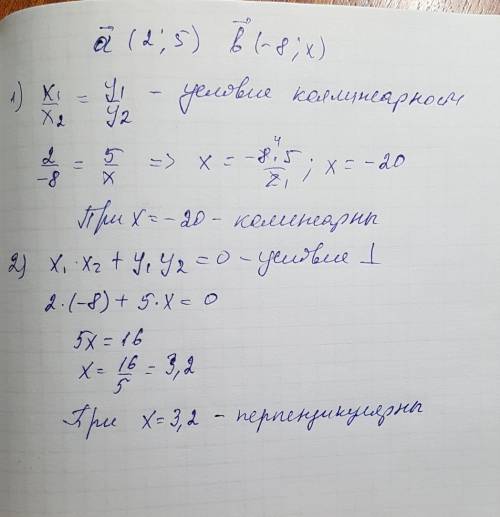 a⃗ (2; 5) b⃗ (-8; x)
1) x₁/x₂ = y₁/y₂ - условие коллинеарности
2/-8 = 5/x => x = -8⁴·5/2₁; x = -20
При x = -20 - колинеарны
2) x₁·x₂ + y₁y₂ = 0 - условие ⊥
2·(-8) + 5·x = 0
5x = 16
x = 16/5 = 3,2
При x = 3,2 - перпендикулярны